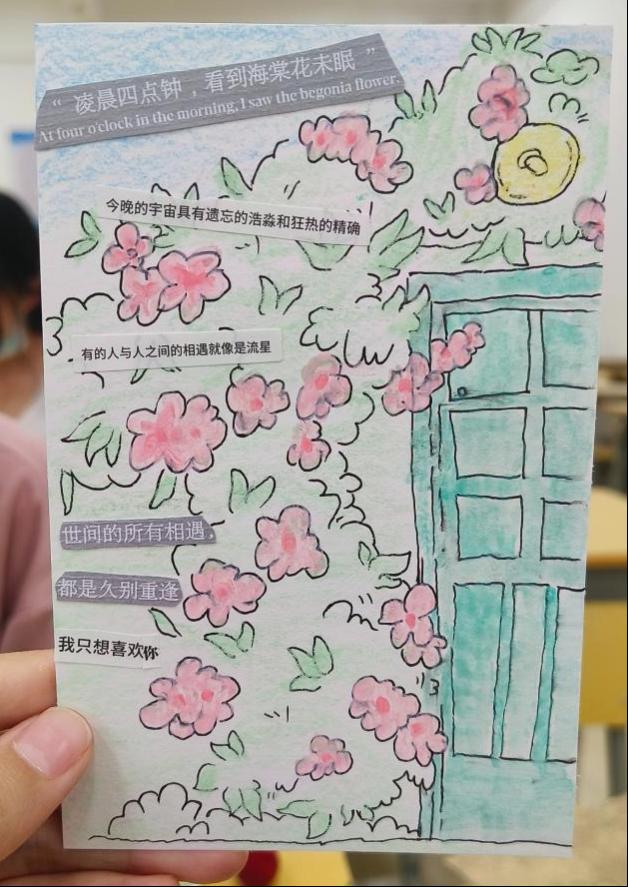 “ 凌晨四点钟，看到海棠花未眠 ”
At four o'clock in the morning, I saw the begonia flower.
今晚的宇宙具有遗忘的浩淼和狂热的精确
有的人与人之间的相遇就像是流星
世间的所有相遇，
都是久别重逢
我只想喜欢你